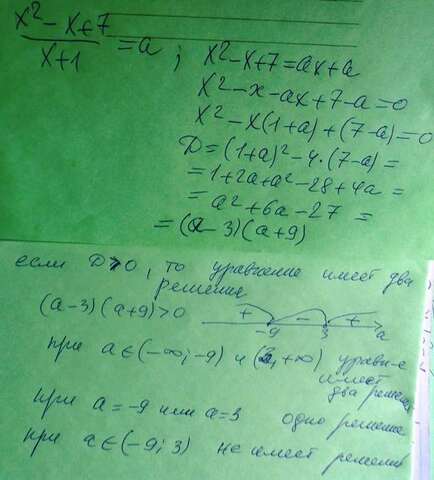 x²-x+7
x+1
=a ; x²-x+7=ax+a
x²-x-ax+7-a=0
x²-x(1+a)+(7-a)=0
D=(1+a)²-4·(7-a)=
=1+2a+a²-28+4a=
=a²+6a-27=
=(a-3)(a+9)
если D>0, то уравнение имеет два
решения
(a-3)(a+9)>0 + - + -9 3 a
при a∈(-∞;-9) и (3,+∞) уравн-е
имеет
два решения
при a=-9 или a=3 одно решение
при a∈(-9;3) не имеет решений